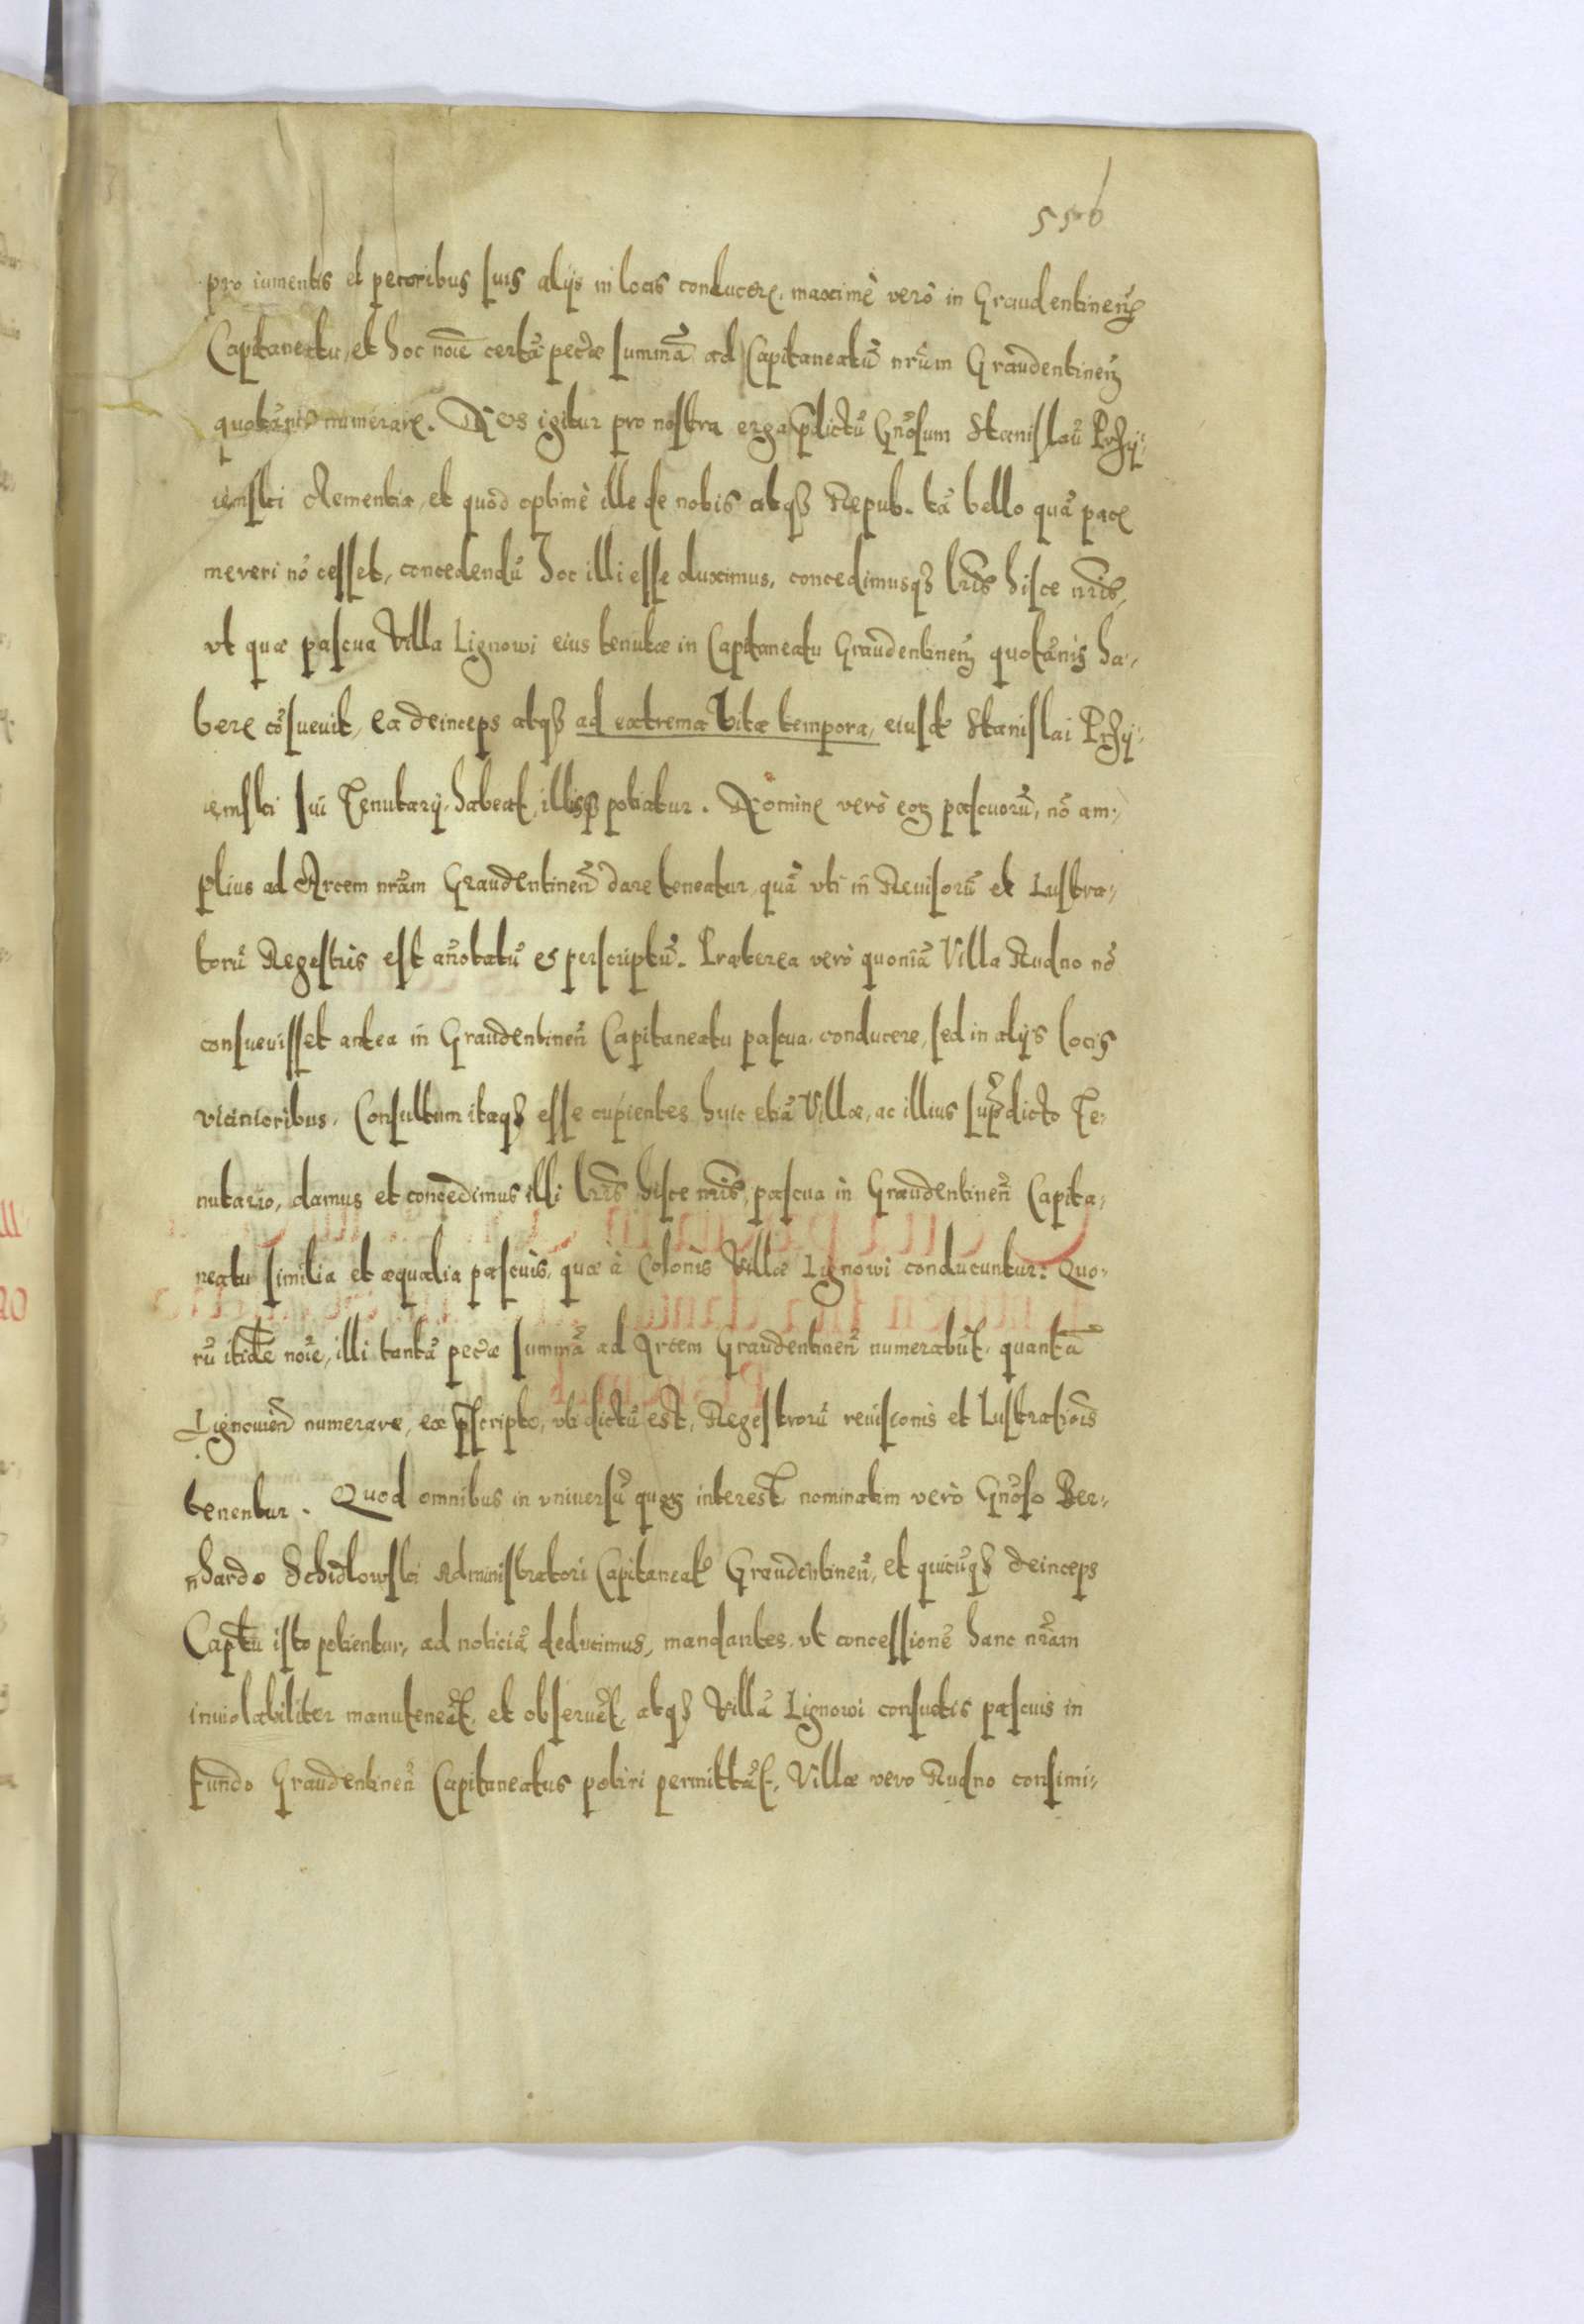 556
pro iumentis et pecoribus suis alijs in locis conducere, maximè verò in Graudentinens̃
Capitaneatu, et hoc noĩe certã pecũæ summã ad Capitaneatũ nr̃um Graudentinens̃
quotãnis numerare. Nos igitur pro nostra erga p̃dictũ Gñosum Stanislaũ Przy-
iemski clementia, et quòd optimè ille de nobis atq₃ Repub. tã bello quã pace
mereri nõ cesset, concedendũ hoc illi esse duximus, concedimusq₃ lr̃is hisce nr̃is,
vt quæ pascua Villa Lignowi eius tenutæ in Capitaneatu Graudentinens̃ quotãnis ha-
bere cõsuevit, ea deinceps atq₃ ad extrema Vitæ tempora, eiusdẽ Stanislai Przy-
iemski sui Tenutarij, habeat, illisq₃ potiatur. Nomine verò eoꝝ pascuorũ, nõ am-
plius ad Arcem nr̃am Graudentineñ dare teneatur, quã vti in Reuisorũ et Lustra-
torũ Regestris est añotatũ & perscriptũ. Præterea verò quoniã Villa Rudno nõ
consuevisset antea in Graudentineñ Capitaneatu pascua conducere, sed in alijs locis
vicinioribus, Consultum itaq₃ esse cupientes huic etiã Villæ, ac illius supᷓdicto Te-
nutario, damus et concedimus illi lr̃is hisce nr̃is, pascua in Graudentineñ Capita-
neatu similia et æqualia pascuis, quæ à Colonis Villæ Lignowi conducuntur: Quo-
rũ itidẽ noĩe, illi tantã pecũæ summã ad Arcem Graudentineñ numerabũt, quantã
Lignowieñ numerare, ex p̃scripto, vti dictũ est, Regestrorũ reuisionis et Lustratiõis
tenentur. Quod omnibus in vniversũ quoꝝ interest, nominatim verò Gñoso Ber-
nhardo Schidlowski Administratori Capitaneatꝰ Graudentineñ, et quicũq₃ deinceps
Captũ isto potientur, ad noticiã deducimus, mandantes, vt concessionẽ hanc nr̃am
inviolabiliter manuteneãt, et obseruẽt, atq₃ Villã Lignowi consuetis pascuis in
fundo Graudentineñ Capitaneatus potiri permittãt, Villæ vero Rudno consimi-